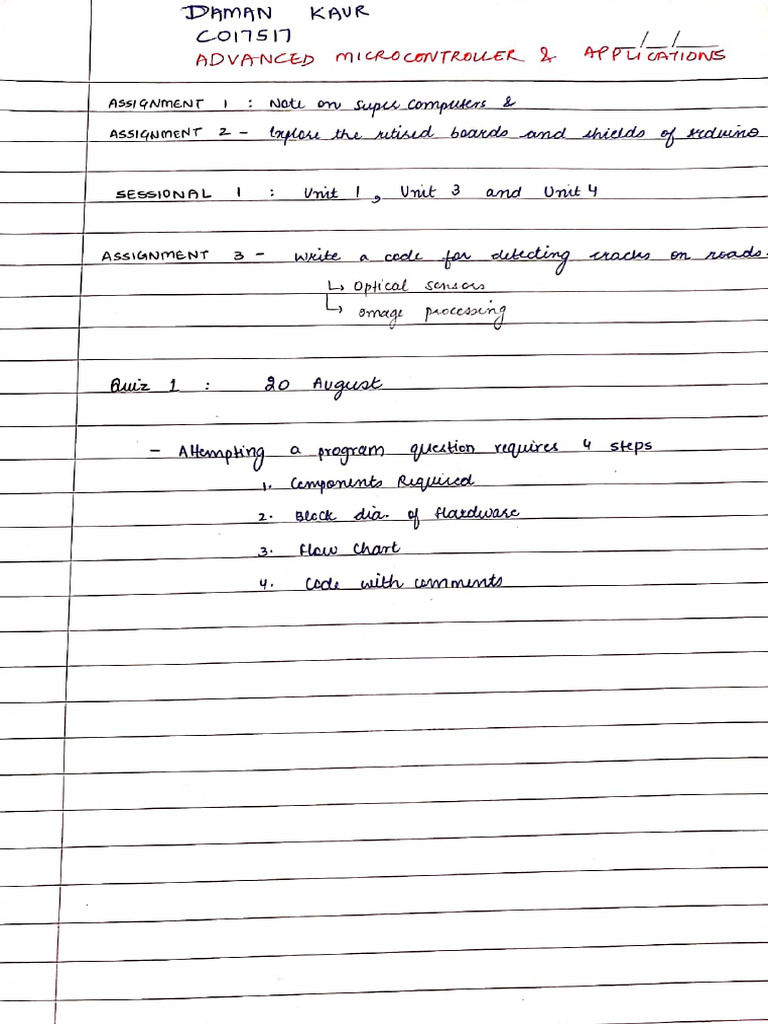 DAMAN KAUR
CO17517
ADVANCED MICROCONTROLLER & APPLICATIONS
ASSIGNMENT 1 : Note on super computers &
ASSIGNMENT 2 - Explore the retired boards and shields of arduino
SESSIONAL 1 : Unit 1, Unit 3 and Unit 4
ASSIGNMENT 3 - Write a code for detecting cracks on roads.
↳ Optical sensors
↳ Image processing
Quiz 1 : 20 August
- Attempting a program question requires 4 steps
1. Components Required
2. Block dia. of Hardware
3. Flow Chart
4. Code with comments